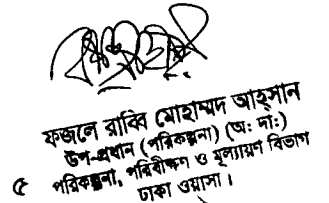 ফজলে রাব্বি মোহাম্মদ আহ্সান
উপ-প্রধান (পরিকল্পনা) (অঃ দাঃ)
৫ পরিকল্পনা, পরিবীক্ষণ ও মূল্যায়ণ বিভাগ
ঢাকা ওয়াসা।